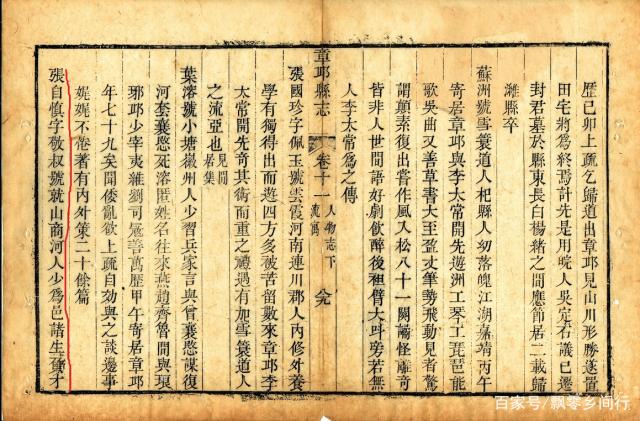 歷已卯上疏乞歸道出章邱見山川形勝遂置
田宅將爲終焉計先是用晥人吳定石議已遷
封君墓於縣東長白楊緒之間應節居二載歸
濰縣卒
蘇洲號雪蓑道人杞縣人幼落魄江湖嘉靖丙午
寄居章邱與李太常開先遊洲工琴工琵琶能
歌吳曲又善草書大至盈丈筆勢飛動見者驚
謂顛素復出嘗作風入松八十一闋譎怪離奇
皆非人世間語好劇飲醉後袒臂大呼旁若無
人李太常爲之傳
章邱縣志
卷十一
人物志下
流寓
六九
張國珍字佩玉號雲霞河南連川郡人內修外養
學有獨得出而遊四方多被苦留數來章邱李
太常開先奇其術而重之禮遇有加雪蓑道人
之流亞也
見閒
居集
葉溶號小塘徽州人少習兵家言與曾襄愍謀復
河套襄愍死溶匿姓名往來燕趙齊魯間與琅
琊邱少宰夷雜劉司寇善萬歷甲午寄居章邱
年七十九矣聞倭亂欲上疏自効與之談邊事
娓娓不倦著有內外策二十餘篇
張自慎字敬叔號就山商河人少爲邑諸生奮才
百家号/飘零乡间行